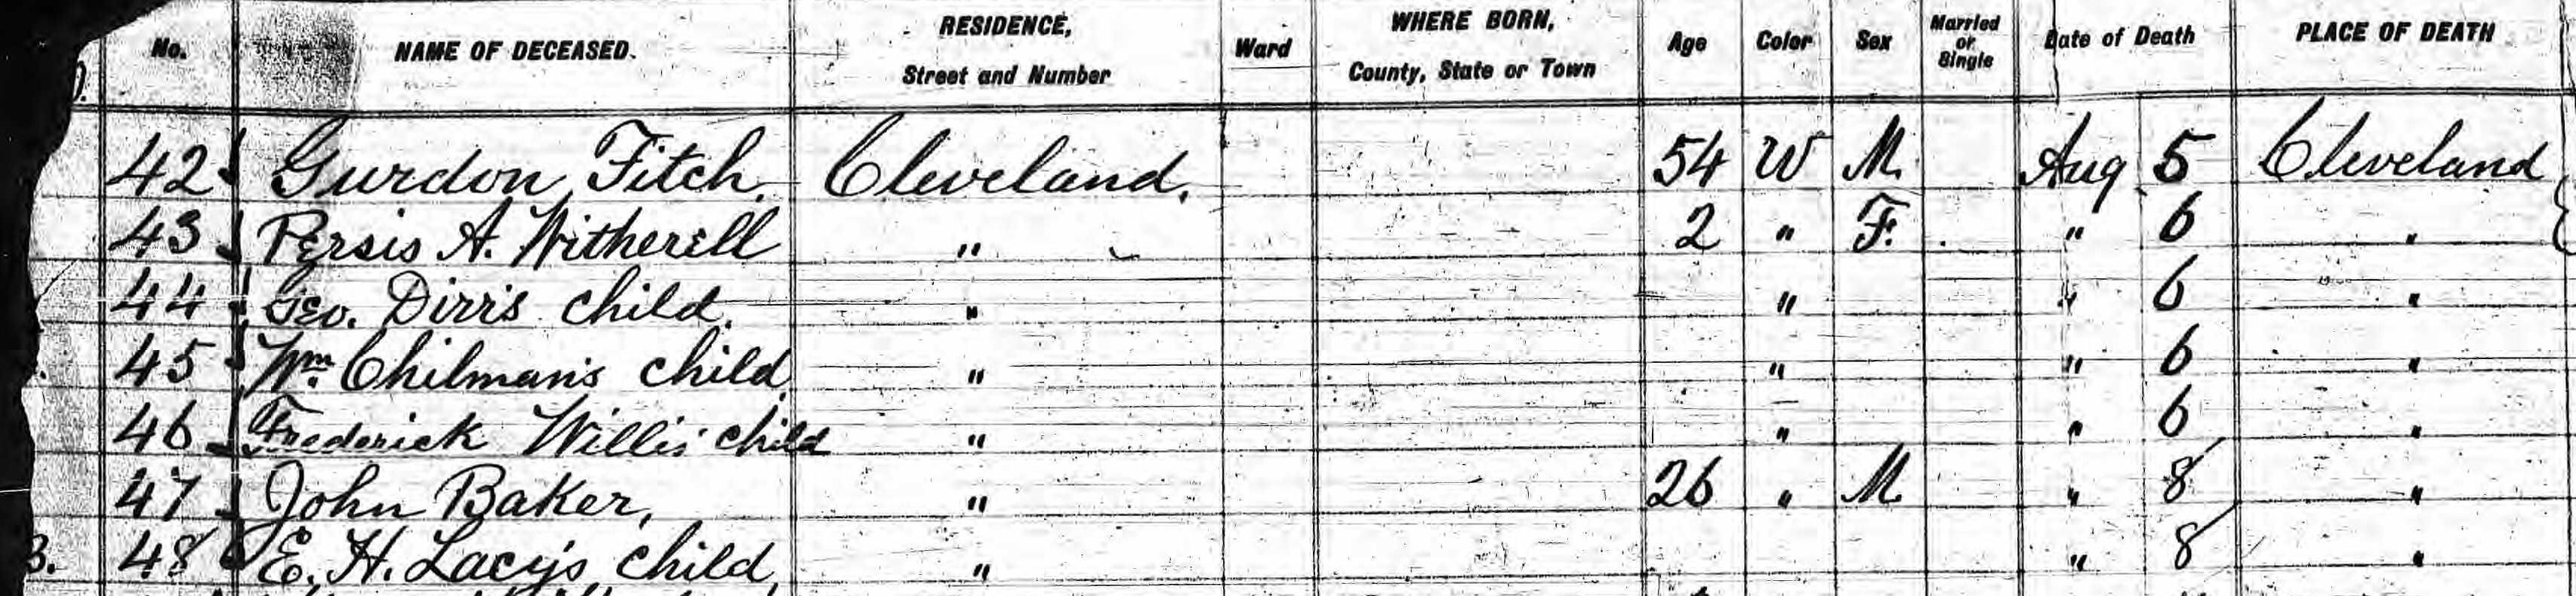 No. NAME OF DECEASED. RESIDENCE, Street and Number Ward WHERE BORN, County, State or Town Age Color Sex Married or Single Date of Death PLACE OF DEATH
42 Gurdon Fitch. Cleveland. 54 W M. Aug 5 Cleveland
43 Persis A. Witherell " 2 " F. " 6 "
44 Geo. Dirr's child. " " " 6 "
45 Wm. Chilman's child " " " 6 "
46 Frederick Willis' child " " " 6 "
47 John Baker, " 26 " M " 8 "
48 E. H. Lacy's child, " " 8 "